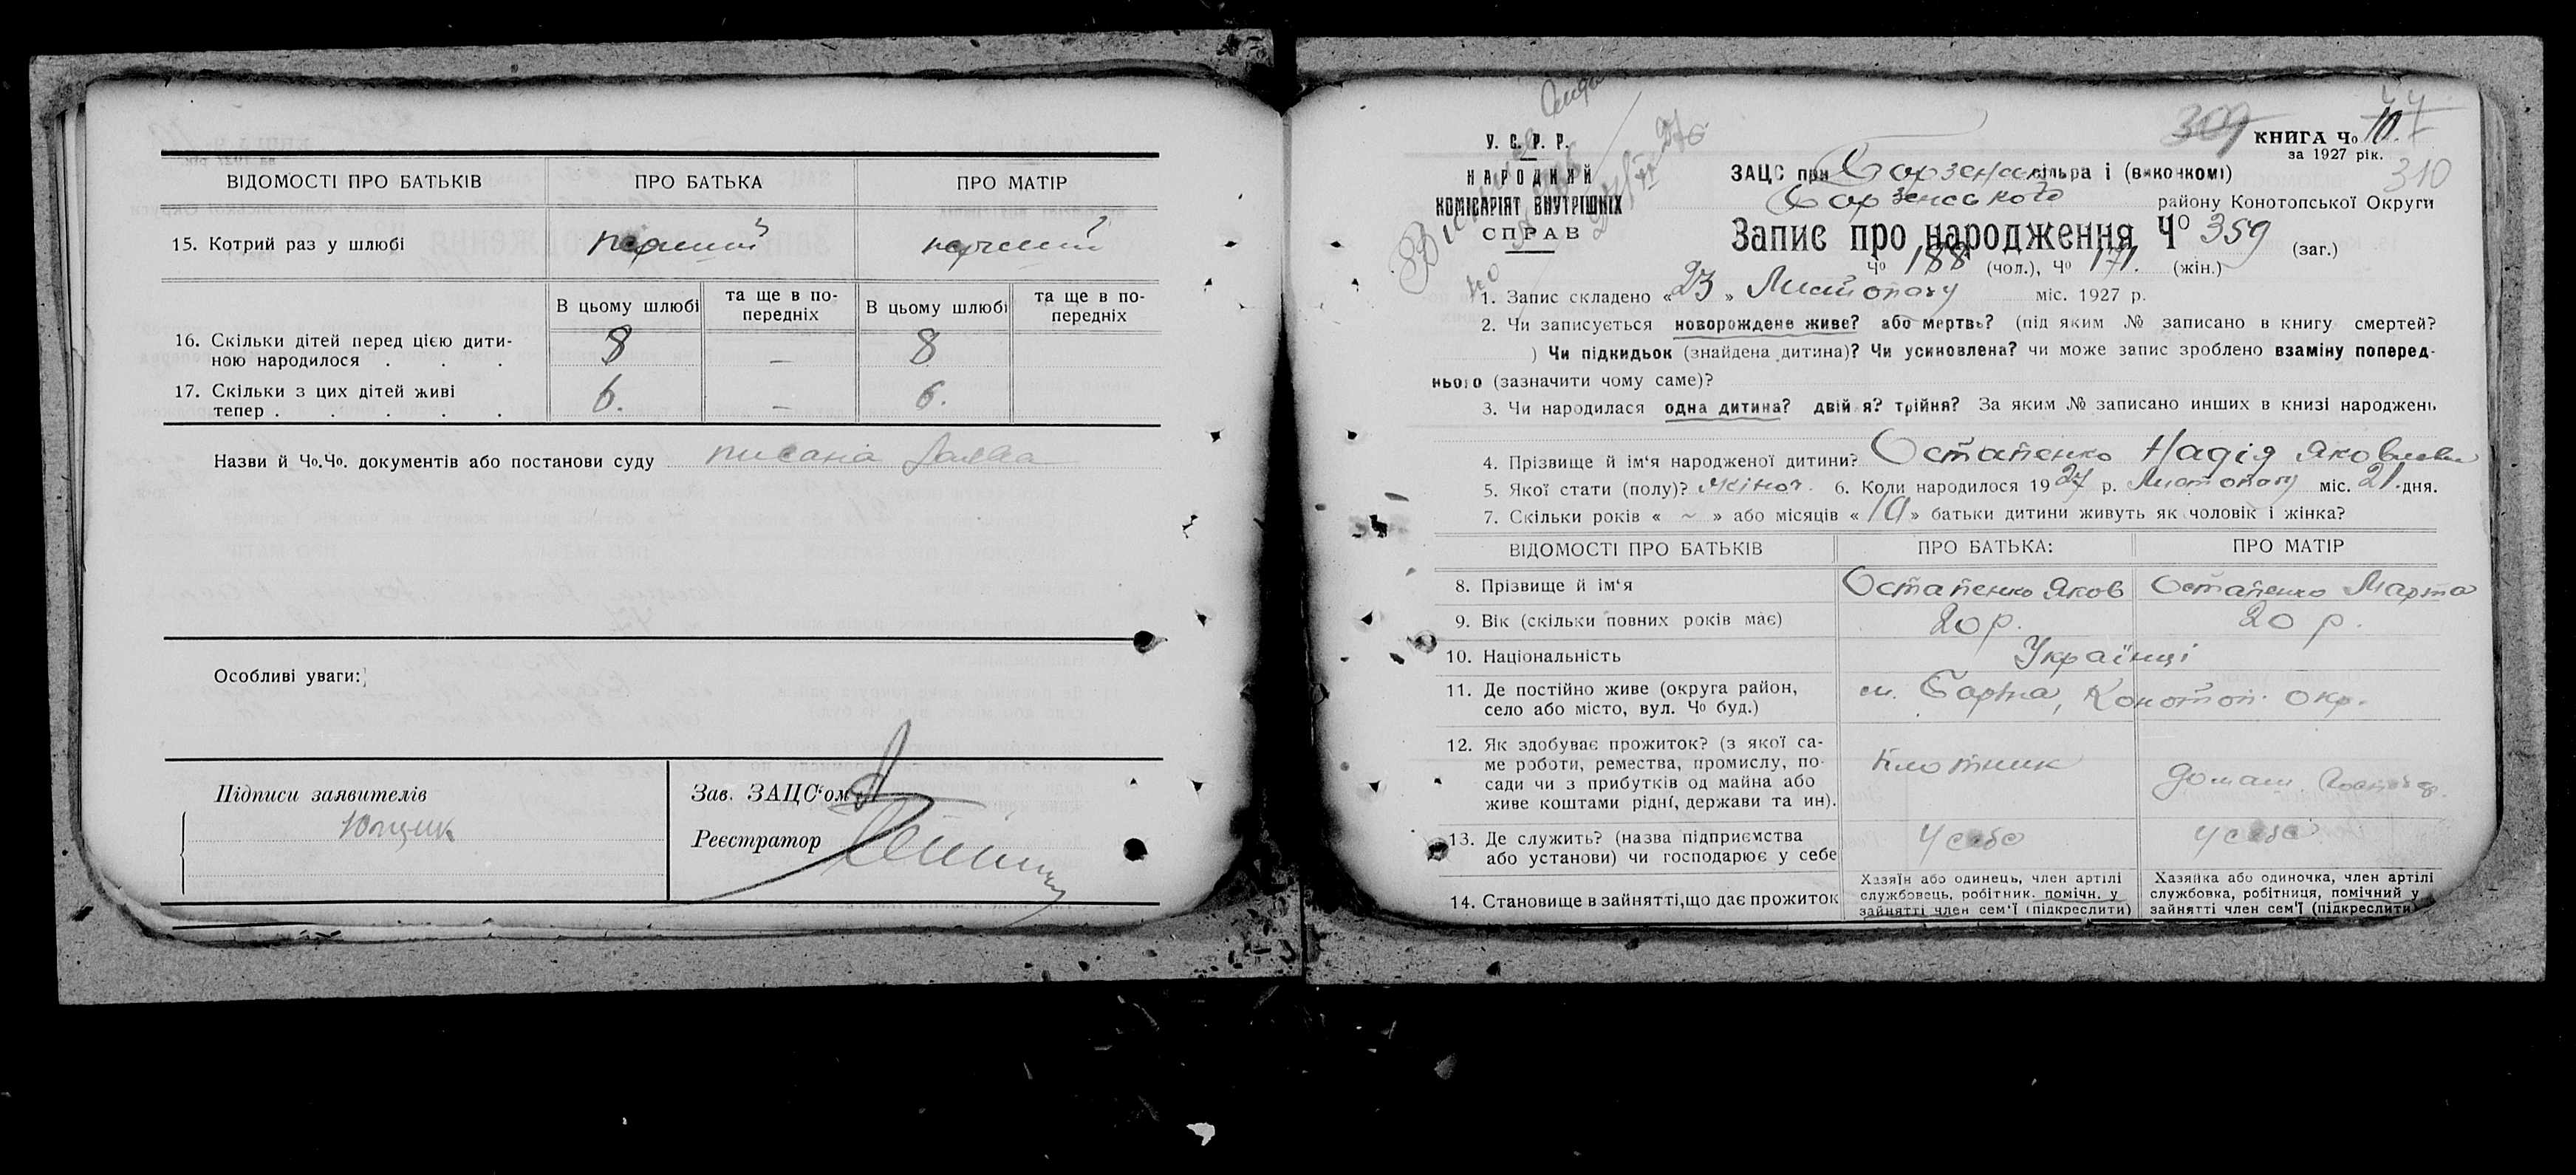 ВІДОМОСТІ ПРО БАТЬКІВ ПРО БАТЬКА ПРО МАТІР
15. Котрий раз у шлюбі перший перший
В цьому шлюбі та ще в по-передніх В цьому шлюбі та ще в по-передніх
16. Скільки дітей перед цією дити-
ною народилося . . . 8 — 8
17. Скільки з цих дітей живі
тепер . . . . . 6. — 6.
Назви й Чо.Чо. документів або постанови суду писана заява
Особливі уваги:
Підписи заявителів
Ющик
Зав. ЗАЦС'ом
Реєстратор
309 КНИГА Чо 10.
за 1927 рік.
310
У. С. Р. Р.
НАРОДНИЙ
КОМІСАРІЯТ ВНУТРІШНІХ
СПРАВ
ЗАЦС при Борзенс сільра і (виконкомі)
Борзенського району Конотопської Округи
Запис про народження Чо 359 (заг.)
Чо 188 (чол.), Чо 171. (жін.)
1. Запис складено « 23 » Листопаду міс. 1927 р.
2. Чи записується новорождене живе? або мертве? (під яким № записано в книгу смертей?
) Чи підкидьок (знайдена дитина)? Чи усиновлена? чи може запис зроблено взаміну поперед-
нього (зазначити чому саме)?
3. Чи народилася одна дитина? двійня? трійня? За яким № записано инших в книзі народжень
4. Прізвище й ім'я народженої дитини? Остапенко Надія Яковлевн
5. Якої стати (полу)? жіноч. 6. Коли народилося 1927 р. Листопаду міс. 21. дня.
7. Скільки років « ~ » або місяців « 10 » батьки дитини живуть як чоловік і жінка?
ВІДОМОСТІ ПРО БАТЬКІВ ПРО БАТЬКА: ПРО МАТІР
8. Прізвище й ім'я Остапенко Яков Остапенко Марта
9. Вік (скільки повних років має) 20 р. 20 р.
10. Національність Українці
11. Де постійно живе (округа район,
село або місто, вул. Чо буд.) м. Борзна, Конотоп. окр.
12. Як здобуває прожиток? (з якої са-
ме роботи, ремества, промислу, по-
сади чи з прибутків од майна або
живе коштами рідні, держави та ин). Плотник домаш. господ.
13. Де служить? (назва підприємства
або установи) чи господарює у себе у себе у себе
14. Становище в зайнятті, що дає прожиток
Хазяїн або одинець, член артілі
службовець, робітник. помічн. у
зайнятті член сем'ї (підкреслити)
Хазяйка або одиночка, член артілі
службовка, робітниця, помічний у
зайнятті член сем'ї (підкреслити)